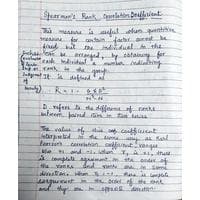 Spearman's Rank Correlation Coefficient
This measure is useful when quantitative
measure for certain factor cannot be
fixed but the individual in the
can be arranged, by obtaining for
each individual a number indicating
rank in the group.
It is defined as
R = 1 - 6 Σ D²
N³-N
D refers to the difference of ranks
between paired items in two series.
The value of this coefficient
interpreted in the same way as Karl
Pearson's correlation coefficient, ranges
+1 and -1. When is +1, there
is complete agreement in the order of
the ranks and ranks are in same
direction. When is -1, there is complete
disagreement in the order of the rank
and they are in opposite direction.
of
beauty)